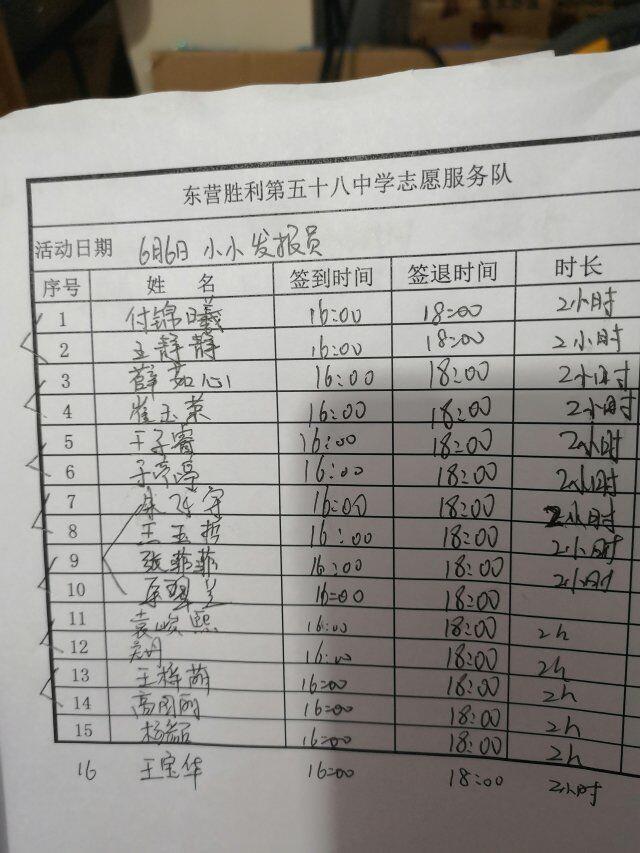 东营胜利第五十八中学志愿服务队
活动日期 6月6日 小小发报员
序号 姓 名 签到时间 签退时间 时长
1 付锦曦 16:00 18:00 2小时
2 王静静 16:00 18:00 2小时
3 薛茹心 16:00 18:00 2小时
4 崔玉荣 16:00 18:00 2小时
5 王子睿 16:00 18:00 2小时
6 16:00 18:00 2小时
7 16:00 18:00 2小时
8 王玉哲 16:00 18:00 2小时
9 张菲菲 16:00 18:00 2小时
10 16:00 18:00
11 袁峻熙 16:00 18:00 2h
12 16:00 18:00 2h
13 王梓萌 16:00 18:00 2h
14 16:00 18:00 2h
15 16:00 18:00 2h
16 王宝华 16:00 18:00 2小时